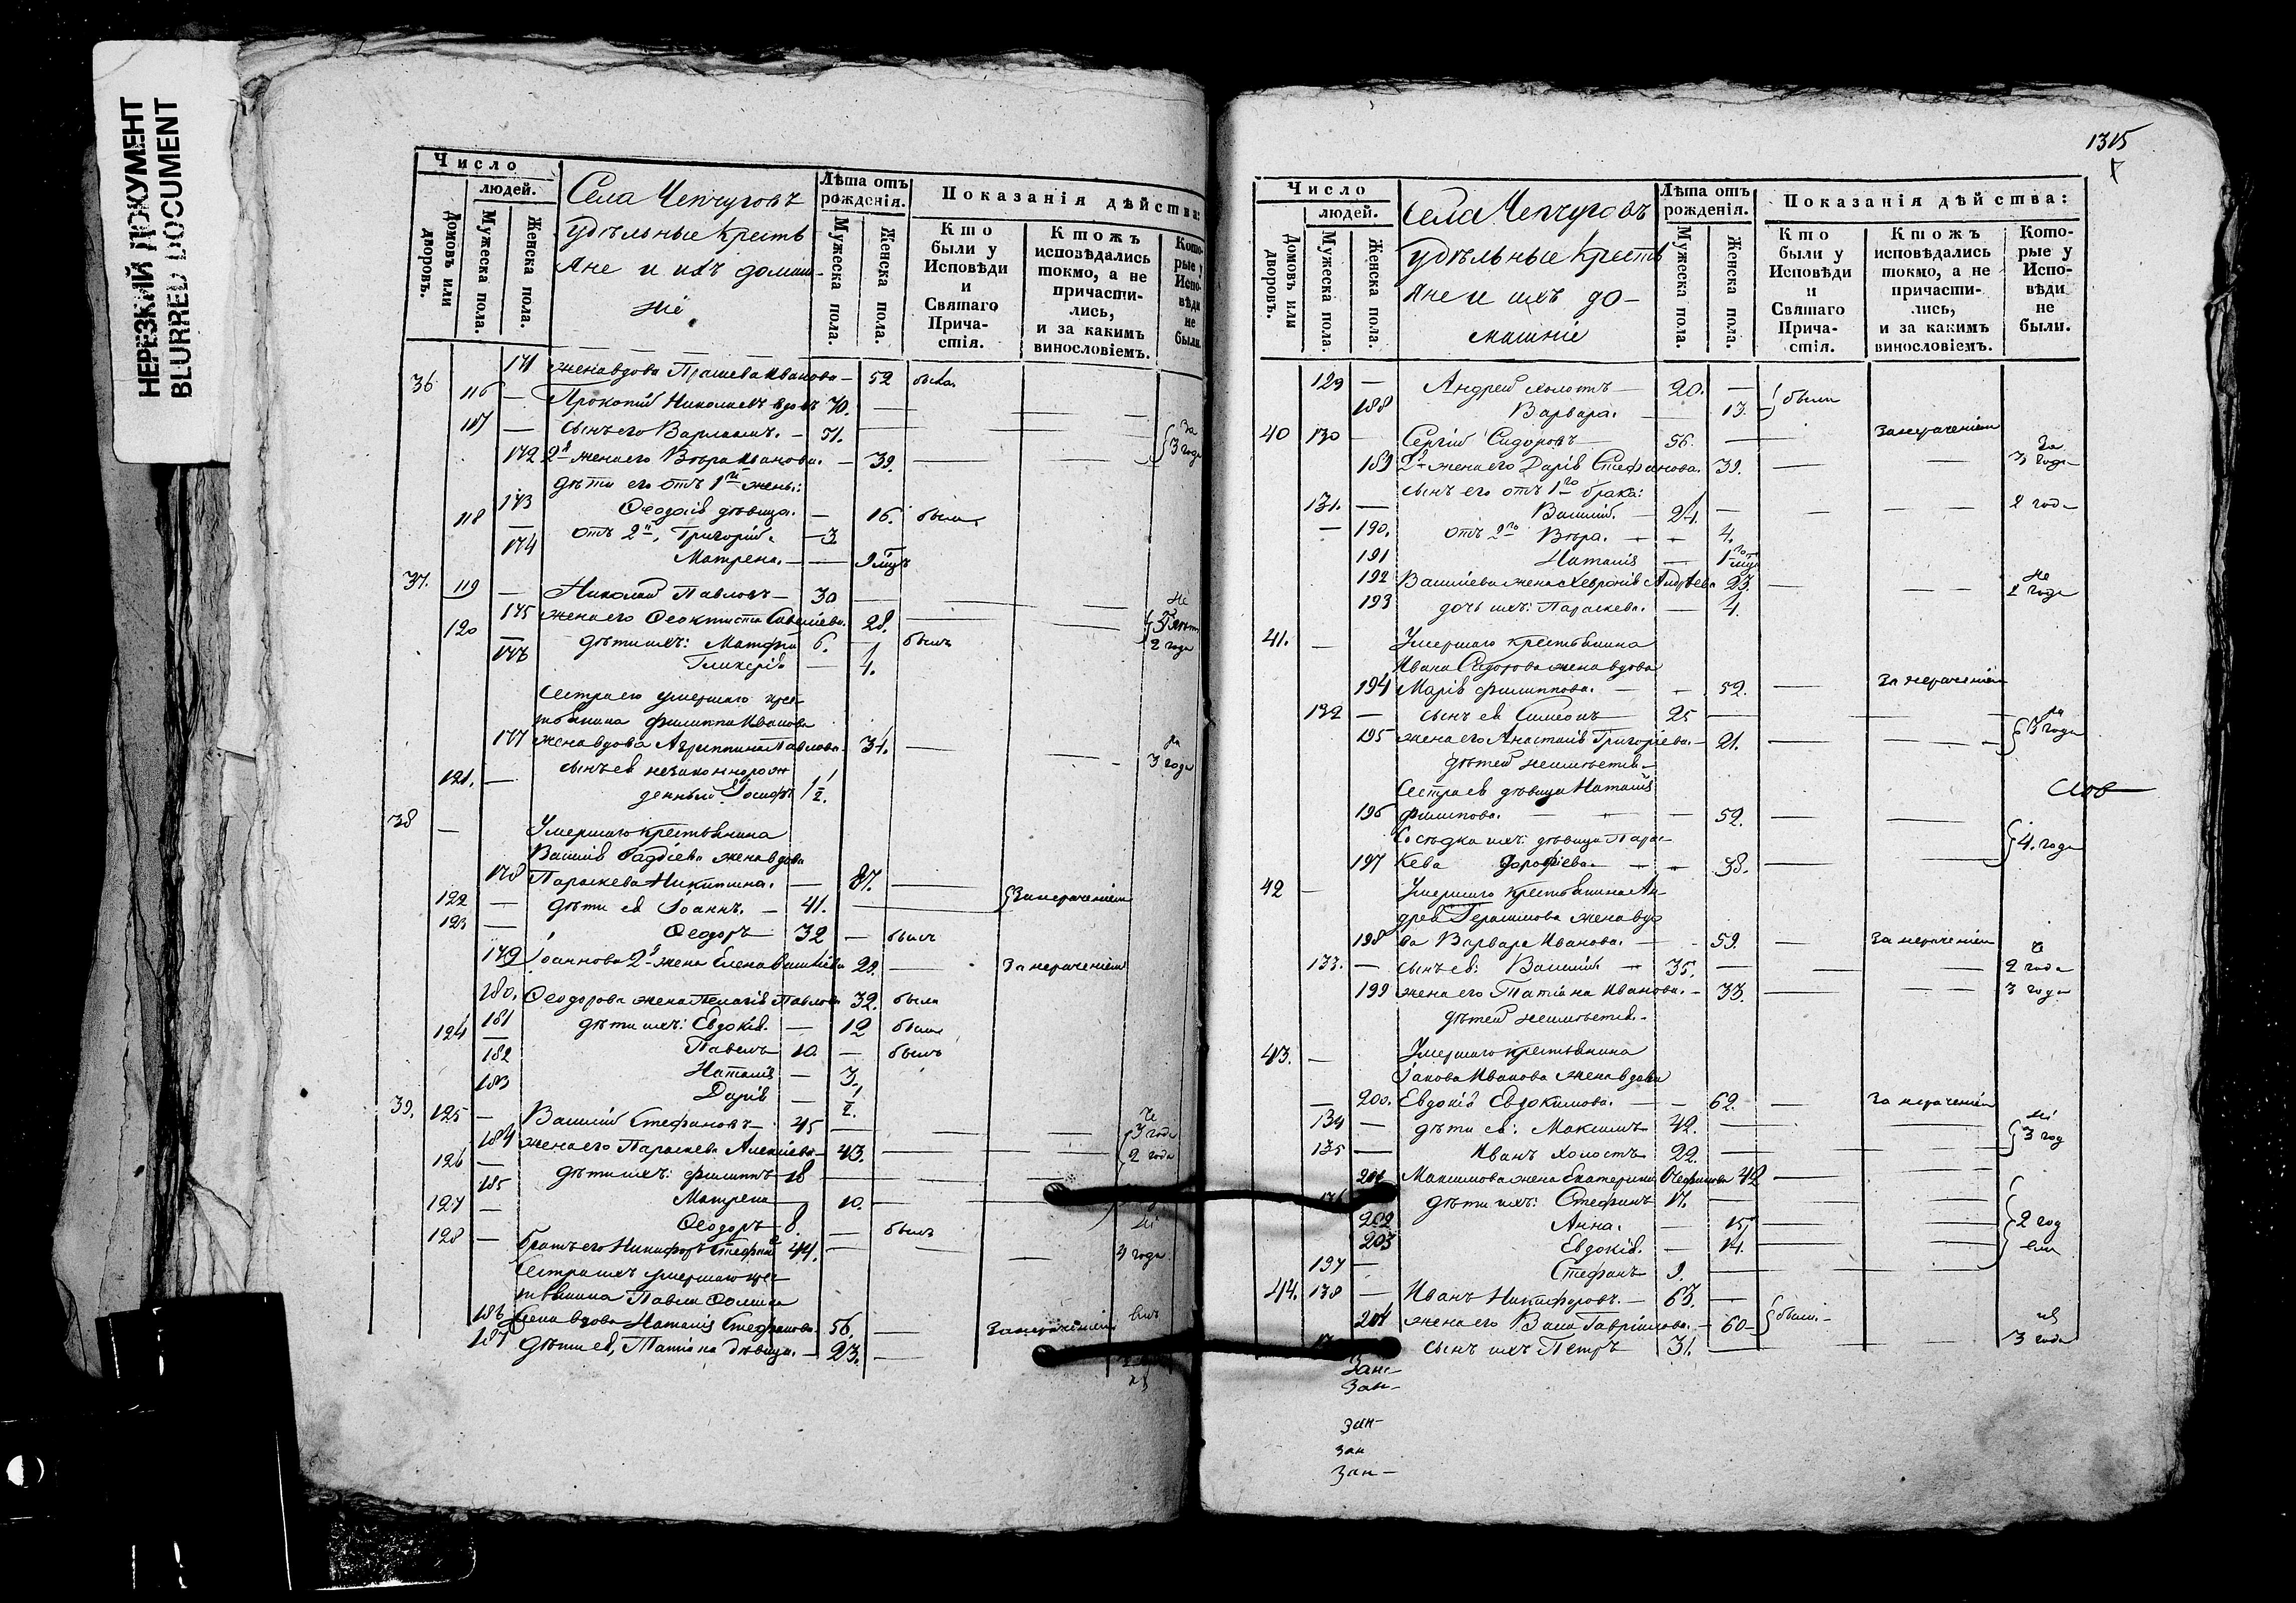 НЕРЕЗКИЙ ДОКУМЕНТ
BLURRED DOCUMENT
Число
людей.
Домовъ или дворовъ.
Мужеска пола.
Женска пола.
Села Чепчуговъ
Удѣльные Кресть
яне и ихъ домаш-
ніе
Лѣта отъ рожденія.
Мужеска пола.
Женска пола.
Показанія дѣйства:
Кто были у Исповѣди и Святаго Прича-стія.
Ктожъ исповѣдались токмо, а не причасти-лись, и за какимъ винословіемъ.
Кото-рые у Испо-вѣди не были.
171 жена вдова Ивановa — 52 была
36 116 — Прокопій Николаевъ вдовъ 70. —
117 — сынъ его Варлаамъ. — 51. — За
172 2я жена его Вѣра Иванова. — 39. — 3 года
дѣти его отъ 1й жены:
173 Ѳеодосія дѣвица. — 16. была
118 — отъ 2й, Григорій. — 3
174 Матрена. — — 9 мцъ
37. 119 — Николай Павловъ — 30 —
175 жена его Ѳеоктиста Савельева. 28.
120 — дѣти ихъ: Матфей 6. — былъ 2 года
176 Гликерія — 4.
Сестра его умершаго крес
тьянина Филиппа Иванова
177 жена вдова Агриппина Павлова 31. — 3 года
121. — сынъ ея незаконнорож
денный Іосифъ 1/2.
38 — Умершаго крестьянина
Василія жена вдова
178 Параскева Никитина. — 87. — За нераченіемъ
122 — дѣти ея Іоаннъ. — 41. —
123 — Ѳеодоръ 32 — былъ
179 Іоаннова 2я жена Елена Васильева 29. — За нераченіемъ
180. Ѳеодорова жена Пелагія Павлова 32. была
181 дѣти ихъ: Евдокія. — 12 была
124 — Павелъ 10. — былъ
182 Наталія — 3.
183 Дарія — 1/2.
39. 125 — Василій Стефановъ — 45 — 3 года
184 жена его Параскева Алексіева — 43. — 2 года
126 — дѣти ихъ: Филиппъ 18 —
185 Матрена — 10. —
127 — Ѳеодоръ 8. — былъ
128 — братъ его Никифоръ Стефановъ 44. — года
Сестра ихъ умершаго крес
тьянина Павла
186 жена вдова Наталія Стефанова 56. — За нераченіемъ
187 дѣти ея, Татіана дѣвица. — 23. —
1315
Число
людей.
Домовъ или дворовъ.
Мужеска пола.
Женска пола.
Села Чепчуговъ
Удѣльные Кресть
яне и ихъ до-
машніе
Лѣта отъ рожденія.
Мужеска пола.
Женска пола.
Показанія дѣйства:
Кто были у Исповѣди и Святаго Прича-стія.
Ктожъ исповѣдались токмо, а не причасти-лись, и за какимъ винословіемъ.
Кото-рые у Испо-вѣди не были.
129 — Андрей холостъ — 20. — были
188 Варвара. — 13.
40 130 — Сергій Сидоровъ — 56. — За нераченіемъ
189 2я жена его Дарія Стефанова. 39. — За 3 года
сынъ его отъ 1го брака:
131. — Василій. — 24. — 2 года
— 190. отъ 2го Вѣра. — 4.
191 Наталія — 1 мцъ
192 Васильева жена Хевронія Андреева 23. — 2 года
193 дочь ихъ: Параскева. — 4
41. — Умершаго крестьянина
Ивана Сидорова жена вдова
194 Марія Филиппова. — 52. — За нераченіемъ
132 — сынъ ея Симеонъ — 25 —
195 жена его Анастасія Григоріева. — 21. — 3 года
дѣтей неимѣетъ —
Сестра ея дѣвица Наталія
196 Филипова. — 52. —
Сосѣдка ихъ: дѣвица Парас-
197 кева Дорофіева. — 38. — 4. года
42 — Умершаго крестьянина Ан
дрея Герасимова жена вдо
198 ва Варвара Иванова. — 59. — За нераченіемъ
133. — сынъ ея: Василій — 35. — 2 года
199 жена его Татіана Иванова. — 33. — 3 года
дѣтей неимѣетъ.
43. — Умершаго крестьянина
Іакова Иванова жена вдова
— 200. Евдокія Евдокимова. — 62. — За нераченіемъ
134 — дѣти ея: Максимъ — 42. — 3 год
135 — Иванъ холостъ 22. —
201 Максимова жена Екатерина 42
136 дѣти ихъ: Стефанъ 17. —
202 Анна. — 15 — 2 год
203 Евдокія. — 14. —
137 — Стефанъ 9. —
44. 138 — Иванъ Никифоровъ. — 63. —
204 жена его Гавріилова. — 60 — были.
сынъ ихъ Петръ 31. — 3 года
Зан-
Зан-
Зан-
Зан
Зан-